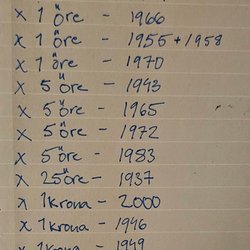 x 1 öre - 1966
x 1 öre - 1955 + 1958
x 1 öre - 1970
x 5 öre - 1943
x 5 öre - 1965
x 5 öre - 1972
x 5 öre - 1983
x 25 öre - 1937
x 1 krona - 2000
x 1 krona - 1946
x 1 krona - 1949